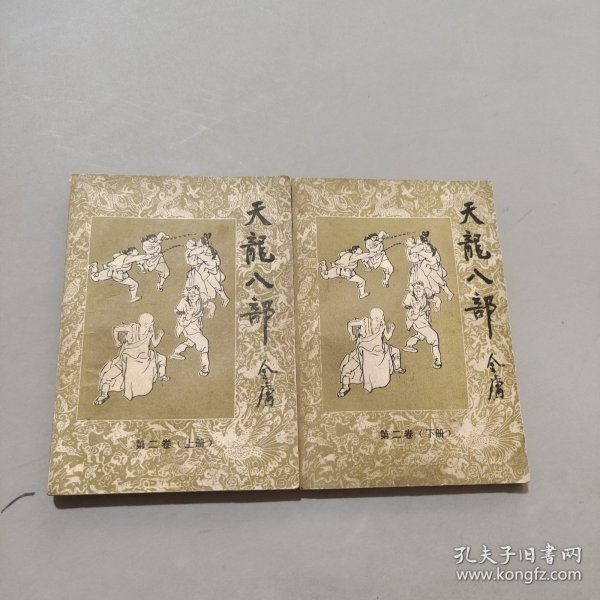 天龍八部
金庸
第二卷（上册）
天龍八部
金庸
第二卷（下册）
孔夫子旧書网
www.kongfz.com